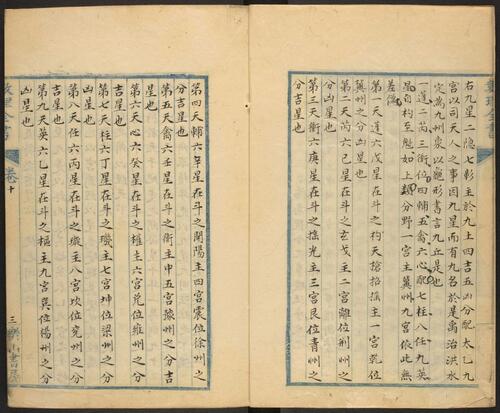 右九星二隐七彰主於九土四吉五凶分配太乙九
宫以司天人之事因九星而有九名於是禹治洪水
定為九州衆以龜形書言九丘是也
一蓬二芮三衝位四輔五禽六心配七柱八任九英
星自杓至魁如上類分野一宫主冀州九宫依此無
差儀
第一天蓬六戊星在斗之杓天揞招摇主一宫乾位
冀州之分凶星也
第二天芮六己星在斗之玄戈主二宫離位荆州之
分凶星也
第三天衝六庚星在斗之摇光主三宫艮位青州之
分吉星也
第四天輔六辛星在斗之開陽主四宫震位徐州之
分吉星也
第五天禽六壬星在斗之衡主中五宫豫州之分吉
星也
第六天心六癸星在斗之權主六宫兑位雍州之分
吉星也
第七天柱六丁星在斗之璣主七宫坤位梁州之分
凶星也
第八天任六丙星在斗之璇主八宫坎位兖州之分
吉星也
第九天英六乙星在斗之樞主九宫巽位揚州之分
凶星也
卷十
三